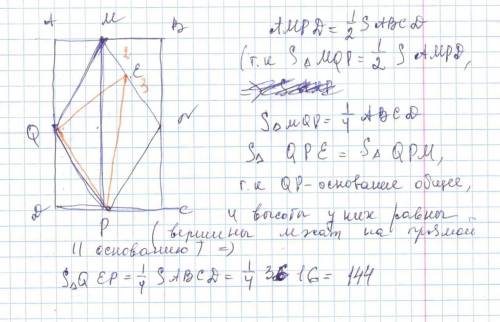 A M B
AMPD = 1/2 SABCD
(т.к S△MQP = 1/2 S AMPD,
E
Q N
S△MQP = 1/4 ABCD
S△ QPE = S△ QPM,
т.к QP-основание общее,
D P C
и высоты у них равны
(вершины лежат на прямой
|| основанию) =>
S△QEP = 1/4 SABCD = 1/4 36 16 = 144